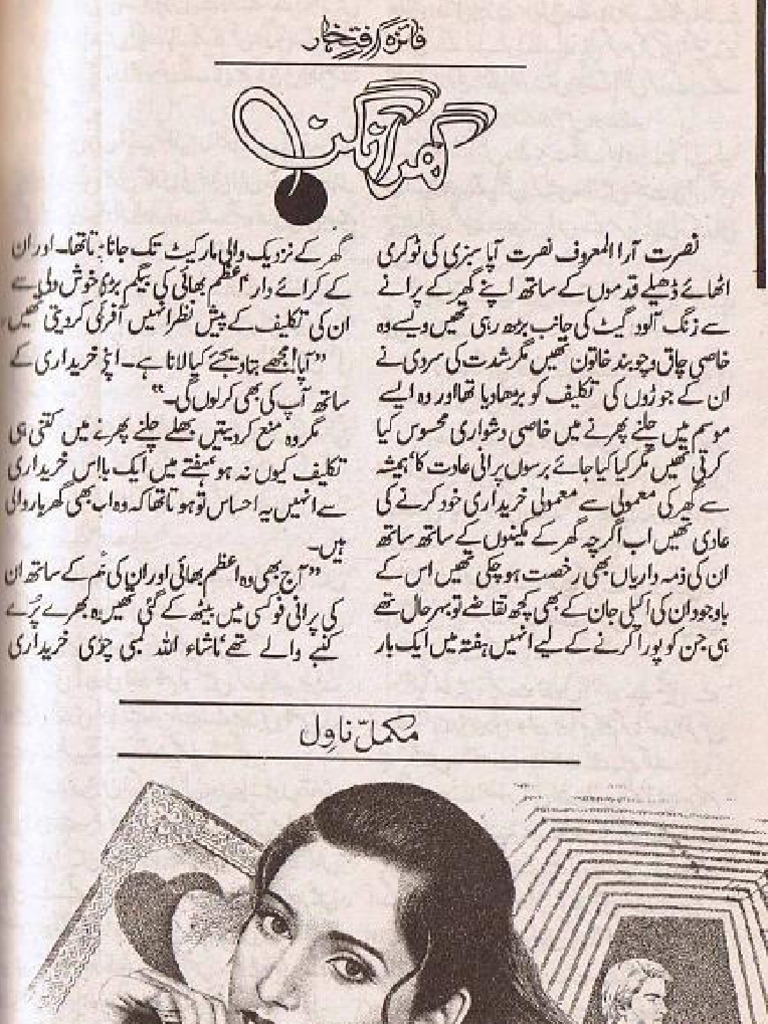 فائزہ افتخار
گھر آنگن
نصرت آرا المعروف نصرت آپا سبزی کی ٹوکری
اٹھائے ڈھیلے قدموں کے ساتھ اپنے گھر کے پرانے
سے زنگ آلود گیٹ کی جانب بڑھ رہی تھیں ویسے وہ
خاصی چاق و چوبند خاتون تھیں مگر شدت کی سردی نے
ان کے جوڑوں کی تکلیف کو بڑھا دیا تھا اور وہ ایسے
موسم میں چلنے پھرنے میں خاصی دشواری محسوس کیا
کرتی تھیں مگر کیا کیا جائے برسوں پرانی عادت کا‘ ہمیشہ
سے گھر کی معمولی سے معمولی خریداری خود کرنے کی
عادی تھیں اب اگرچہ گھر کے مکینوں کے ساتھ ساتھ
ان کی ذمہ داریاں بھی رخصت ہو چکی تھیں اس کے
باوجود ان کی اکیلی جان کے بھی کچھ تقاضے تو بہرحال تھے
ہی جن کو پورا کرنے کے لیے انہیں ہفتہ میں ایک بار
گھر کے نزدیک والی مارکیٹ تک جانا پڑتا تھا۔ اور ان
کے کرائے دار ’اعظم بھائی کی بیگم بڑی خوش دلی سے
ان کی تکلیف کے پیش نظر انہیں آفر کی کردیتی تھیں۔
”آپا! مجھے بتا دیجئے کیا لانا ہے۔ اپنی خریداری کے
ساتھ آپ کی بھی کرلوں گی۔“
مگر وہ منع کر دیتیں بھلے چلنے پھرنے میں کتنی ہی
تکلیف کیوں نہ ہو‘ ہفتے میں ایک بار اس خریداری
سے انہیں یہ احساس تو ہوتا تھا کہ وہ اب بھی گھر بار والی
ہیں۔
”آج بھی وہ اعظم بھائی اور ان کی مسز کے ساتھ ان
کی پرانی فوکسی میں بیٹھ کے گئی تھیں وہ بھرے پُرے
کنبے والے تھے‘ ماشاء اللہ لمبی چوڑی خریداری
مکمل ناول